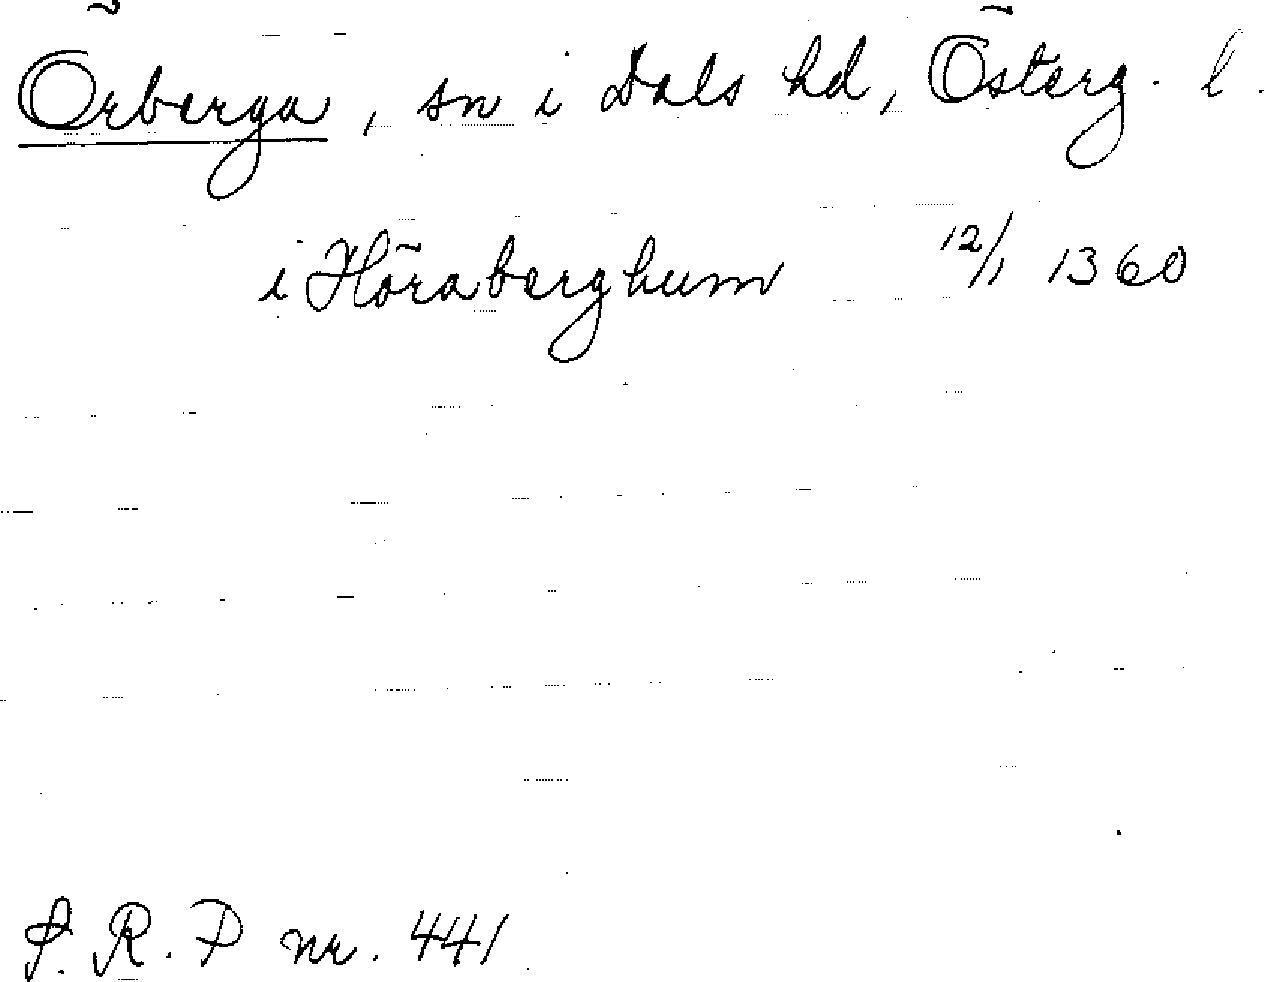 Örberga, sn i Dals hd, Österg. l.
i Höraberghum 12/1 1360
S. R. P nr. 441